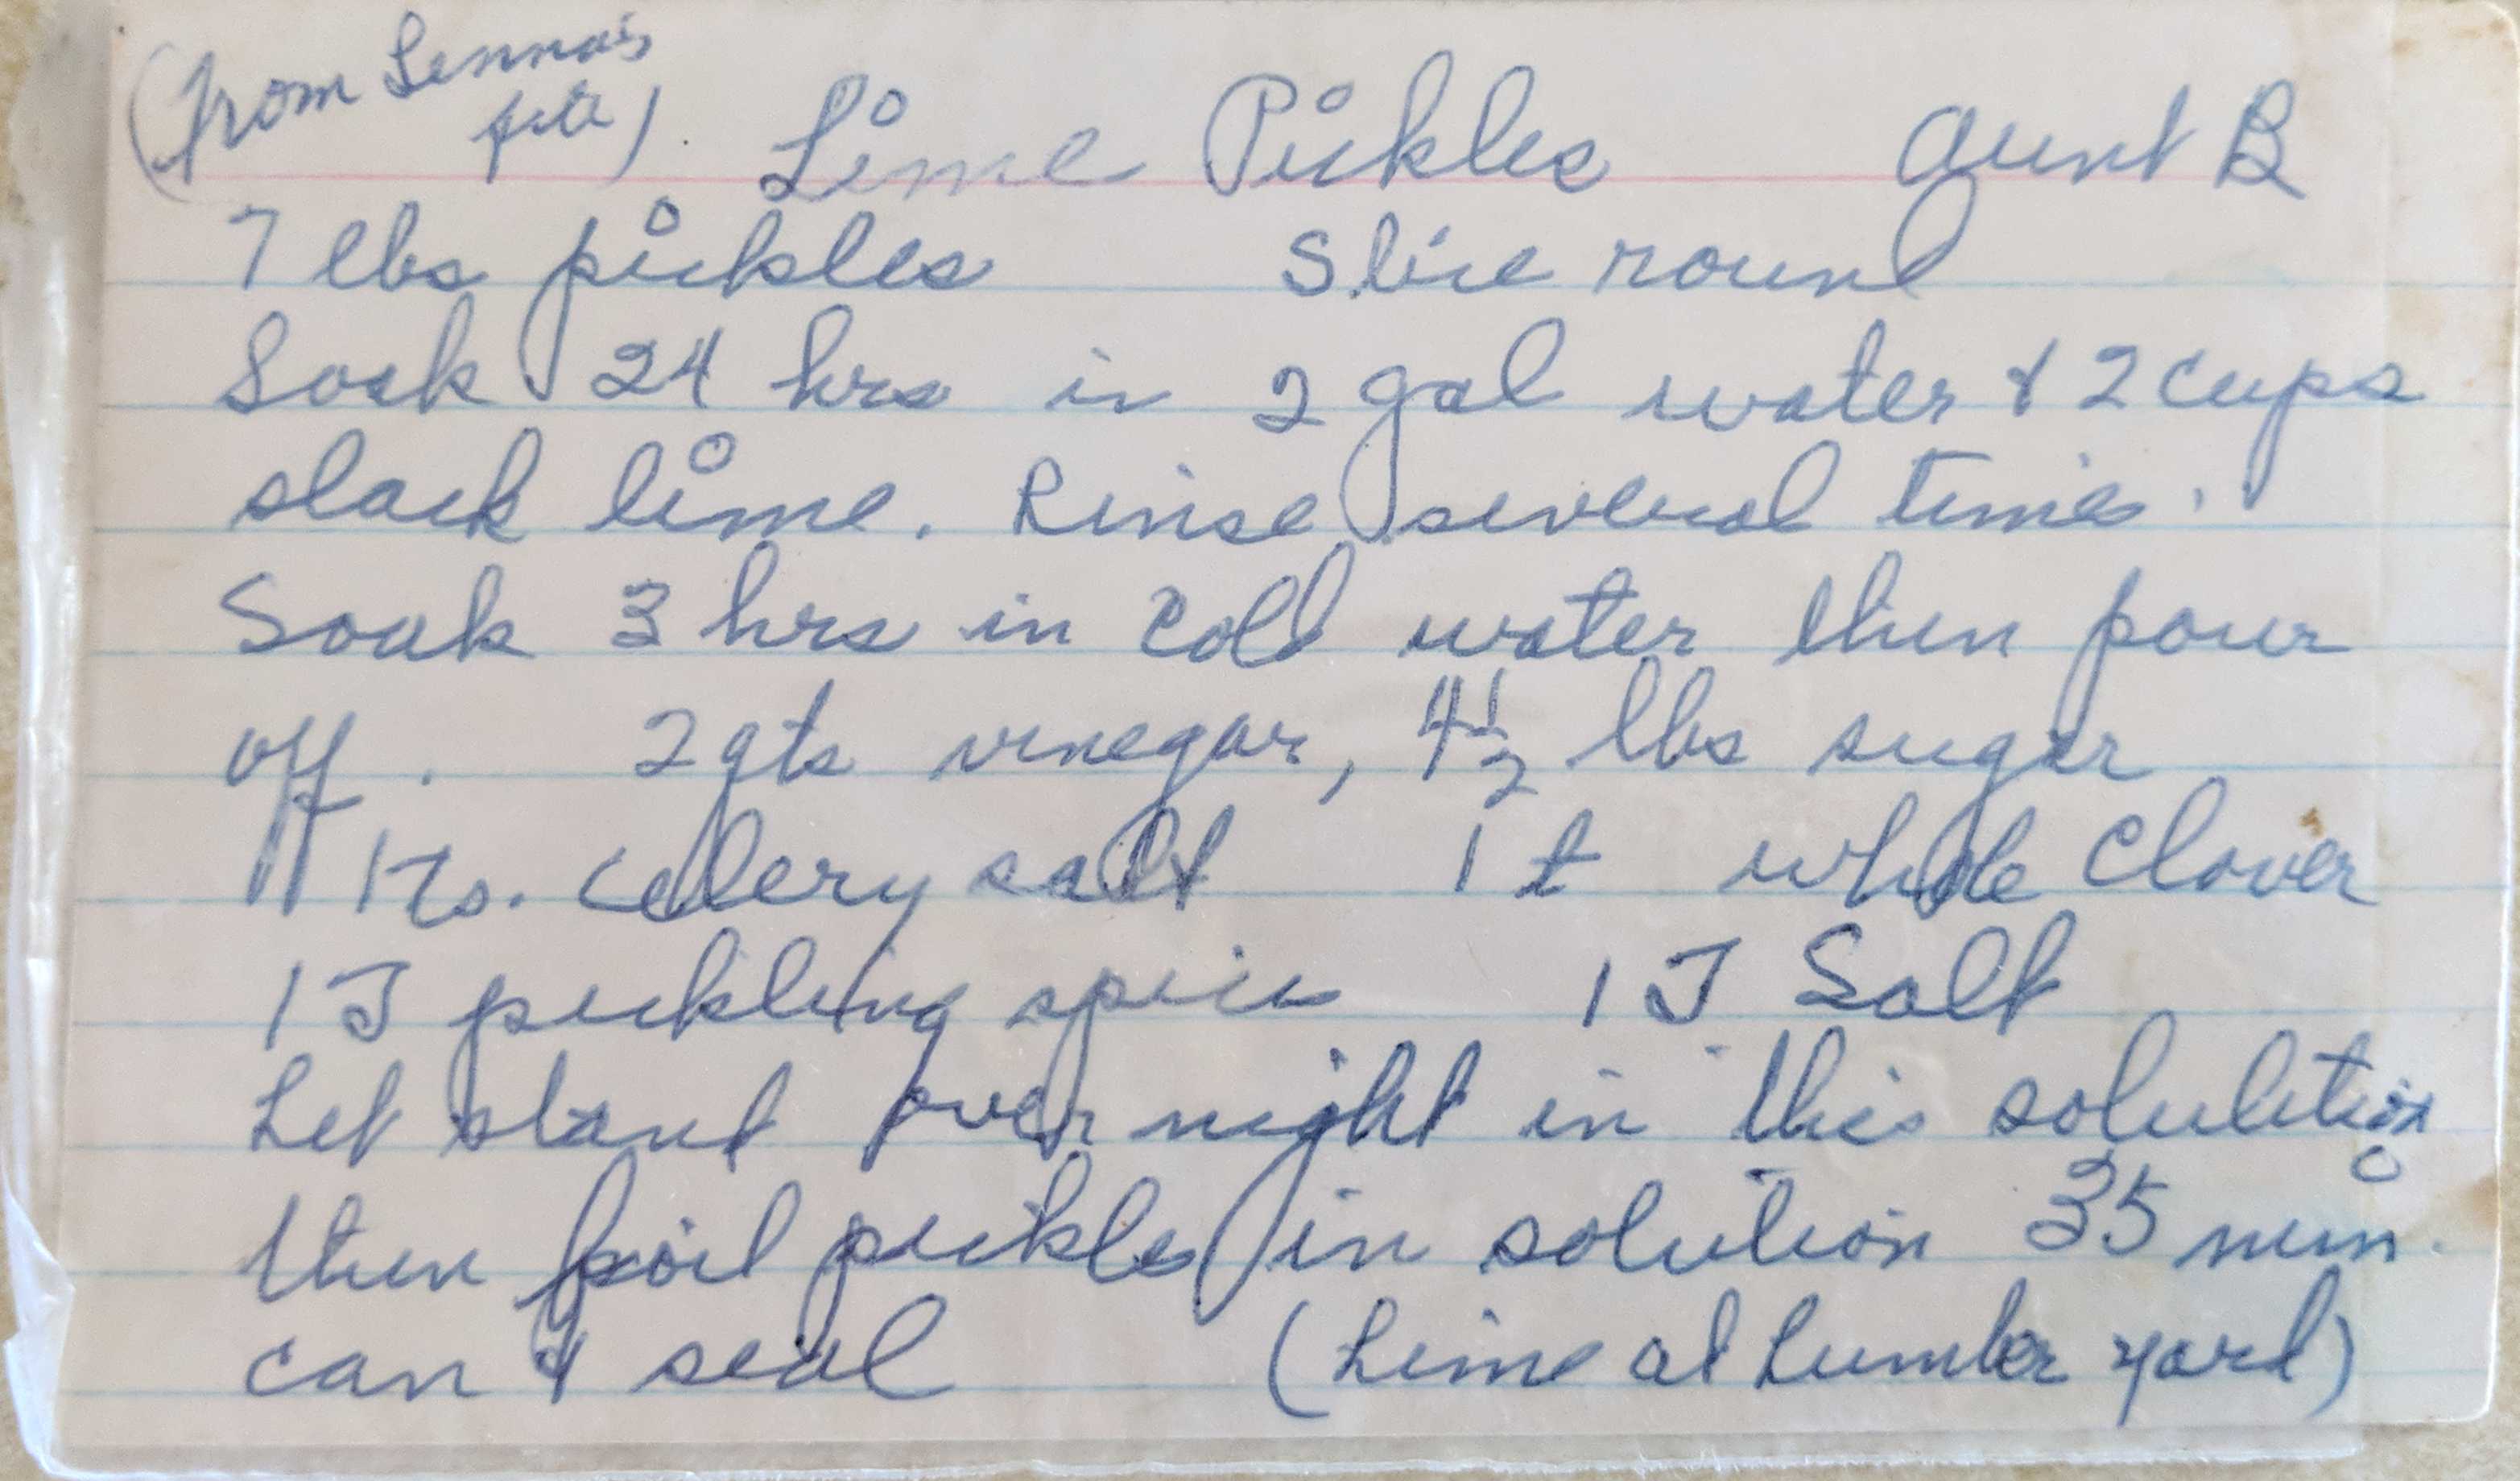 (from Lenna's
file)
Lime Pickles Aunt B
7 lbs pickles Slice round
Soak 24 hrs in 2 gal water & 2 cups
slack lime. Rinse several times.
Soak 3 hrs in cold water then pour
off. 2 qts vinegar, 4 1/2 lbs sugar
1 ts. celery salt 1 t whole Cloves
1 T pickling spice 1 T Salt
Let stand over night in this solution
then boil pickles in solution 35 min.
can & seal (Lime at Lumber yard)